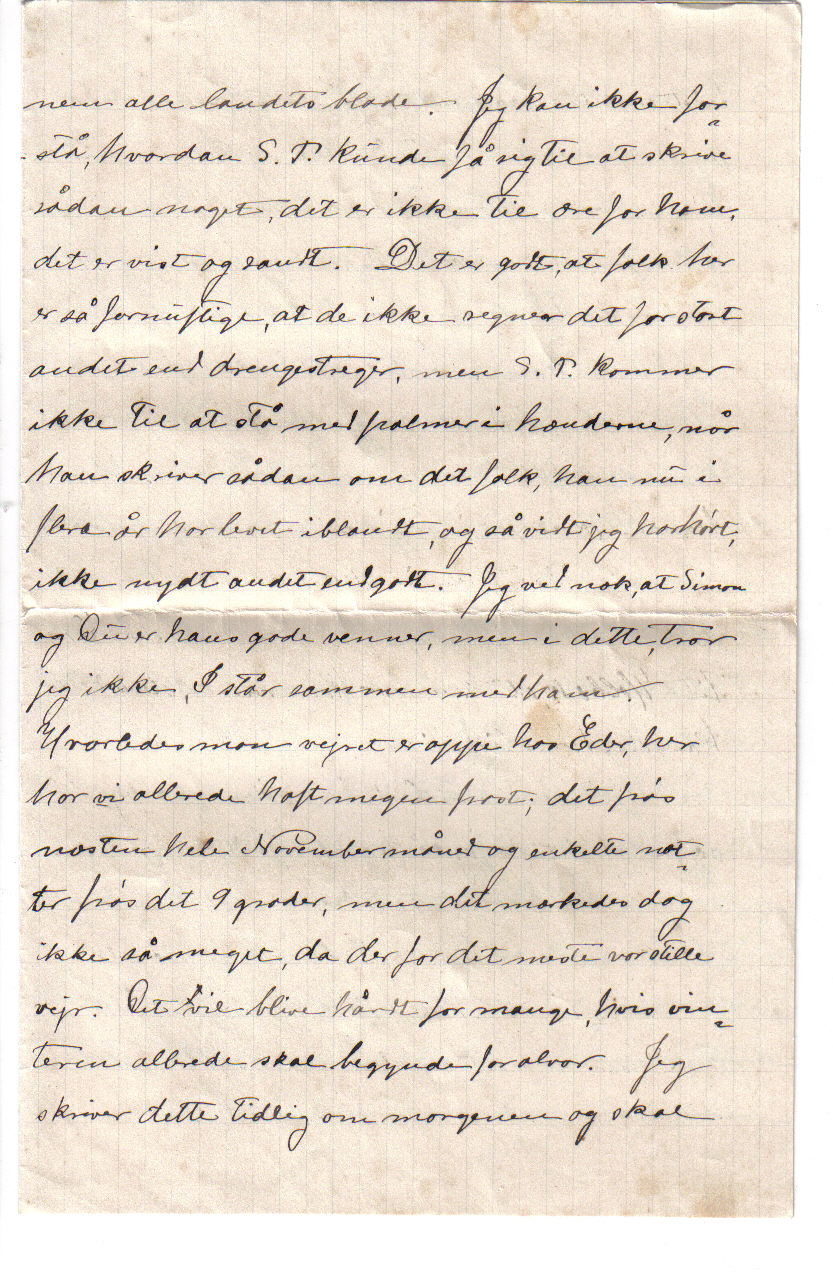 nem alle landets blade. Jeg kan ikke for=
stå, hvordan S. P. kunde få sig til at skrive
sådan noget, det er ikke til ære for ham,
det er vist og sandt. Det er godt, at folk her
er så fornuftige, at de ikke regner det for stort
andet end drengestreger, men S. P. kommer
ikke til at stå med palmer i hænderne, når
han skriver sådan om det folk, han nu i
flera år har levet iblandt, og så vidt jeg har hørt,
ikke nydt andet end godt. Jeg ved nok, at Simon
og Du er hans gode venner, men i dette, tror
jeg ikke, I står sammen med ham.
Hvorledes mon vejret er oppe hos Eder, her
har vi allerede haft megen frost; det frøs
næsten hele November måned og enkelte næt=
ter frøs det 9 grader, men det mærkedes dog
ikke så meget, da der for det meste var stille
vejr. Det vil blive hårdt for mange, hvis vin=
teren allerede skal begynde for alvor. Jeg
skriver dette tidlig om morgenen og skal